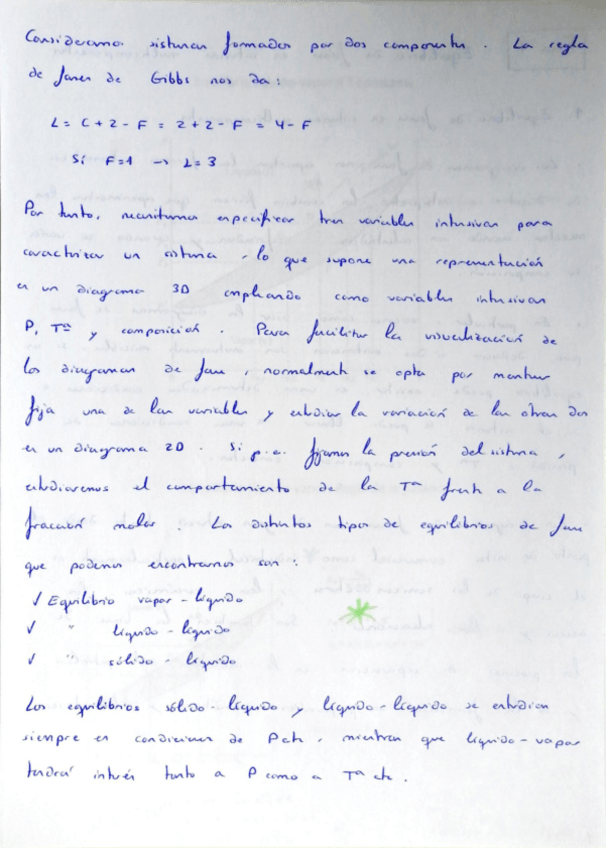 Consideramos sistemas formados por dos componentes. La regla
de fases de Gibbs nos da:
L = C + 2 - F = 2 + 2 - F = 4 - F
Si F = 1 → L = 3
Por tanto, necesitamos especificar tres variables intensivas para
caracterizar un sistema, lo que supone una representación
en un diagrama 3D empleando como variables intensivas
P, Tª y composición. Para facilitar la visualización de
los diagramas de fase, normalmente se opta por mantener
fija una de las variables y estudiar la variación de las otras dos
en un diagrama 2D. Si p.e. fijamos la presión del sistema,
estudiaremos el comportamiento de la Tª frente a la
fracción molar. Los distintos tipos de equilibrios de fase
que podemos encontrarnos son:
✓ Equilibrio vapor - líquido
✓ " líquido - líquido
✓ " sólido - líquido
Los equilibrios sólido - líquido y líquido - líquido se estudian
siempre en condiciones de P cte, mientras que líquido - vapor
tendrá interés tanto a P como a Tª cte.